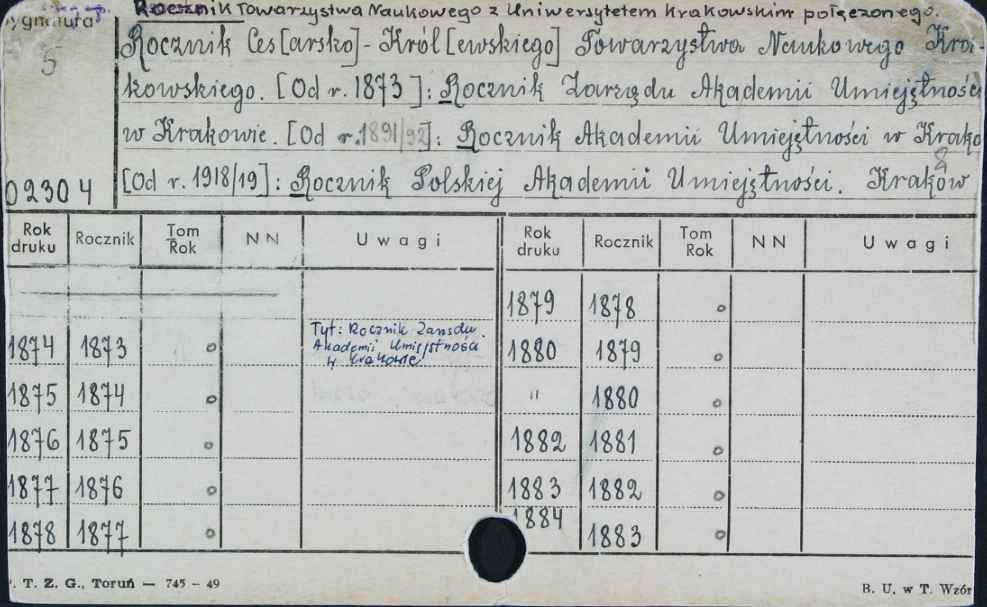 Rocznik Towarzystwa Naukowego z Uniwersytetem Krakowskim połączonego.
ygnatura
5
Rocznik Ces[arsko]-Król[ewskiego] Towarzystwa Naukowego Kra-
kowskiego. [Od r. 1873]: Rocznik Zarządu Akademii Umiejętności
w Krakowie. [Od r. 1891/92]: Rocznik Akademii Umiejętności w Krako
02304 [Od r. 1918/19]: Rocznik Polskiej Akademii Umiejętności. Kraków 8
Rok druku Rocznik Tom Rok NN Uwagi Rok druku Rocznik Tom Rok NN Uwagi
1879 1878 o
1874 1873 o Tyt: Rocznik Zarządu Akademii Umiejętności w Krakowie 1880 1879 o
1875 1874 o " 1880 o
1876 1875 o 1882 1881 o
1877 1876 o 1883 1882 o
1878 1877 o 1884 1883 o
. T. Z. G., Toruń — 745 - 49 B. U. w T. Wzór